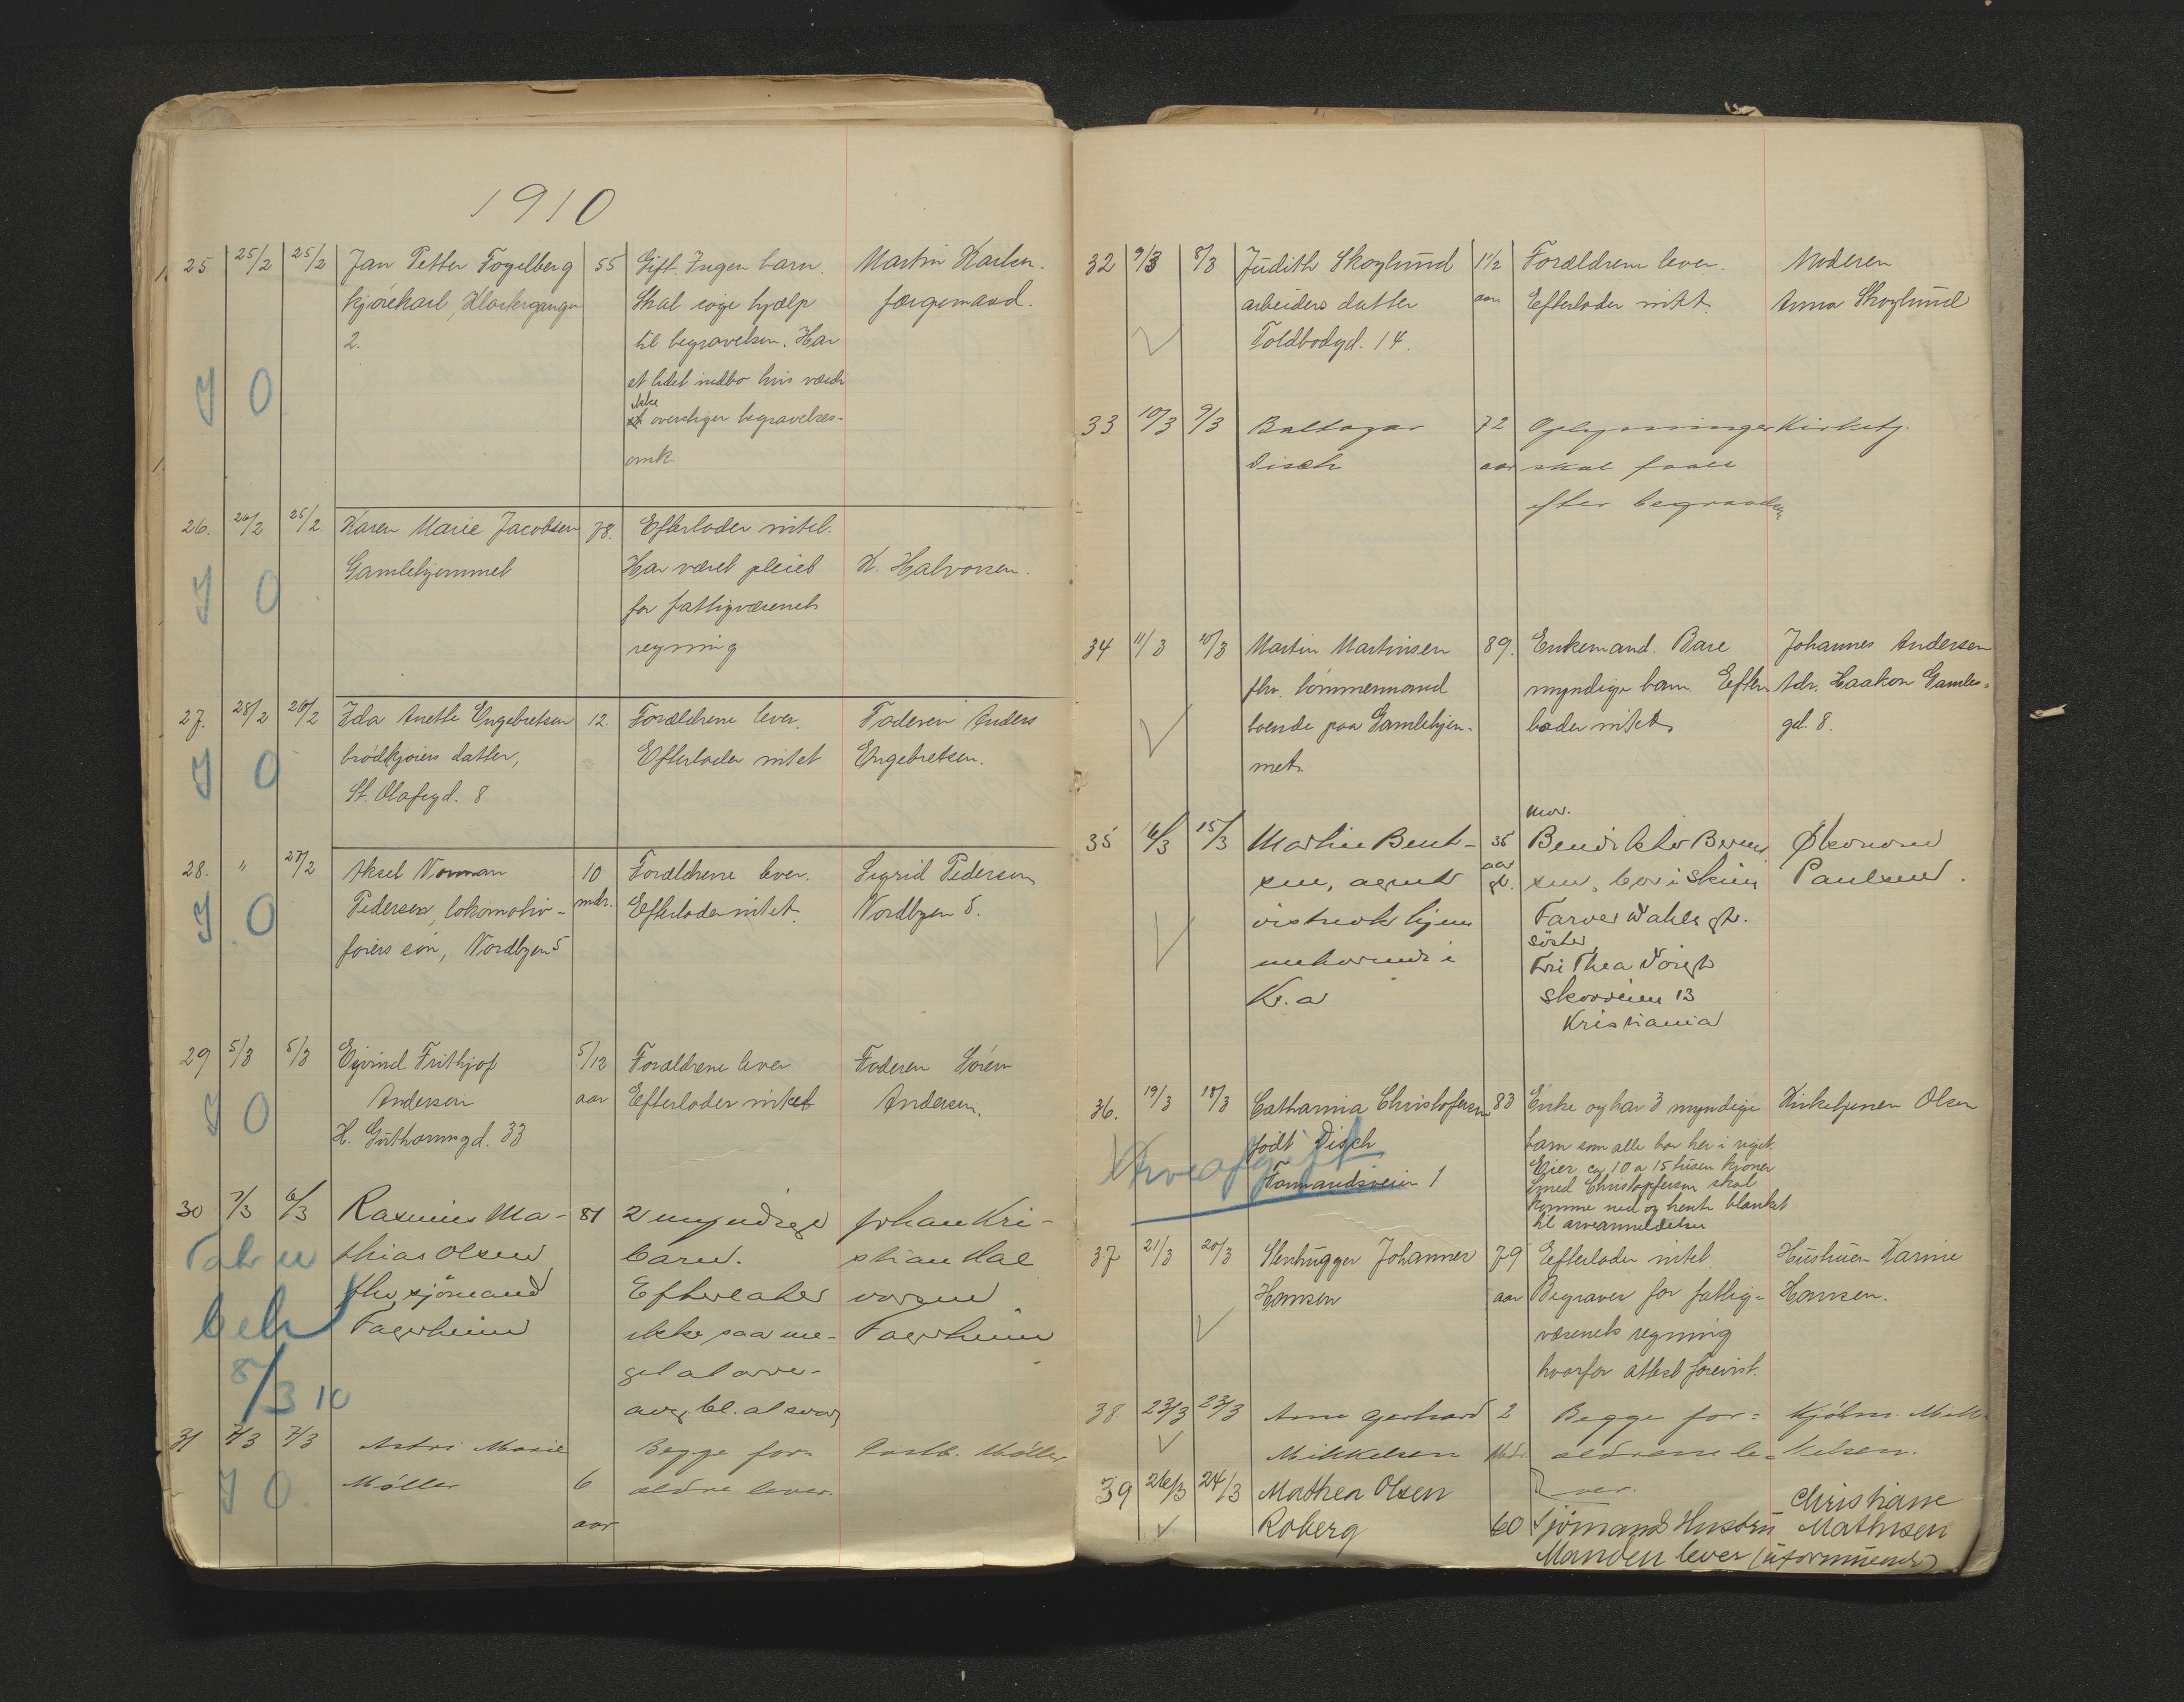 1910
25 25/2 25/2 Jan Petter Fogelberg 55 Gift. Ingen barn. Martin Karlsen.
kjørekarl, Klostergangen Skal søge hjælp færgemand.
2. til begravelsen. Har
et lidet indbo hvis værdi
J O ikke
overstiger begravelses-
omk.
26. 26/2 25/2. Karen Marie Jacobsen 78. Efterlader intet.
Gamlehjemmet Har været pleiet K. Halvorsen.
J O for fattigvæsenets
regning
27. 28/2 26/2 Ida Anette Engebretsen 12. Forældrene lever. Faderen Anders
brødkjørers datter, Efterlader intet Engebretsen.
J O St. Olafsgd. 8
28. " 27/2 Aksel Norman 10 Forældrene lever. Sigrid Pedersen
Pedersen, lokomotiv- mdr. Efterlader intet. Nordbyen 5.
J O førers søn, Nordbyen 5
29 5/3 5/3 Eyvind Frithjof 5/12 Forældrene lever Faderen Søren
Andersen aar Efterlader intet Andersen.
J O H. Guthormsgd. 33
30 7/3 6/3 Rasmus Ma- 81 2 myndige Johan Kri-
thias Olsen barn. stian Hal
fhv sjömand Efterlater vorsen
beh Fagerheim ikke saa me- Fagerheim
8/3 10 get at arve-
avg. bl. at svar
31 7/3 7/3 Astri Marie Begge for- Møller
J O. Møller 6 ældre lever.
aar
32 9/3 8/3 Judith Skoglund 1½ Forældrene lever. Moderen
arbeiders datter aar. Efterlader intet. Anna Skoglund
Toldbodgd. 14.
33 10/3 9/3 Baltazar 72 Oplysninger Kirketj.
Disch aar skal faaes
efter begravelsen
34 11/3 10/3 Martin Martinsen 89. Enkemand. Bare Johannes Andersen
fhv. tømmermand myndige barn. Efter- Adr. Haakon Gamles-
boende paa Gamlehjem- lader intet gd. 8.
met.
mor.
35 16/3 15/3 Martin Bent- 35 Økonom
sen, agent aar sen, bor i Skien Paulsen.
gl. Farver Dahls gt.
hjem- søster
mehørende i Fru Thea Voigt
Kr.a Skovveien 13
Kristiania
36. 19/3 18/3 Catharina Christofersen 83 Enke og har 3 myndige Kirketjener Olsen
født Disch barn som alle bor her i riget.
Arveafgift Eier ca 10 a 15 tusen kroner
Formandsveien 1 Smed Christopfersen skal
komme ned og hente blanket
til arveanmeldelse
37 21/3 20/3 Stenhugger Johannes 79 Efterlader intet. Hustruen Karine
Hansen aar Begraves for fattig- Hansen.
væsenets regning
hvorfor attest forevist.
38 23/3 23/3 Arne Gerhard 2 Begge for- Kjøbm. Mik-
Mikkelsen Mdr. ældrene le- kelsen.
ver.
39 26/3 24/3 Mathea Olsen Christiane
Roberg 60 Sjømands Hustru Mathisen
Manden lever (uformuende)